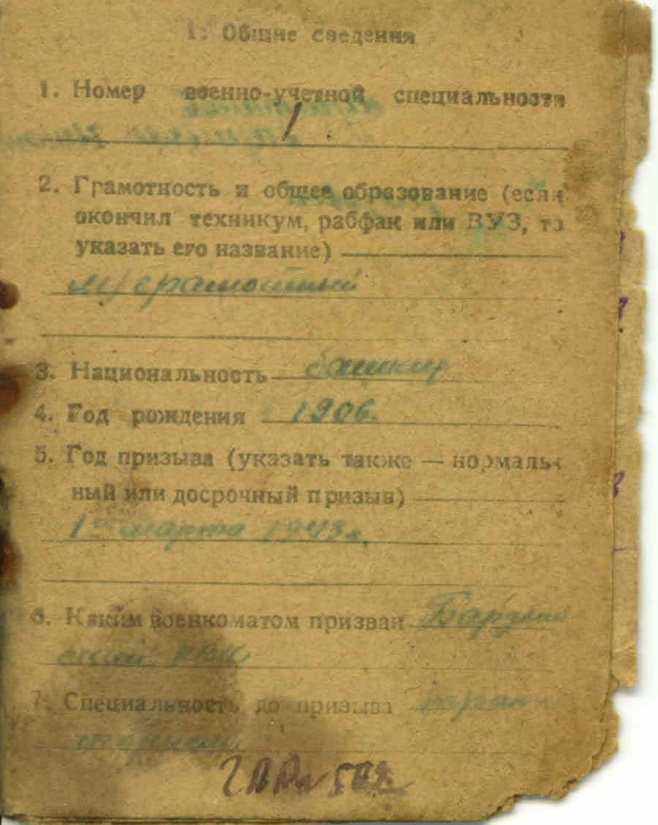 1. Общие сведения
1. Номер военно-учетной специальности
1
2. Грамотность и общее образование (если
окончил техникум, рабфак или ВУЗ, то
указать его название)
м/грамотный
3. Национальность башкир
4. Год рождения 1906.
5. Год призыва (указать также — нормаль-
ный или досрочный призыв)
1 марта 1943 г.
6. Каким военкоматом призван Бардым
ский РВК
7. Специальность до призыва